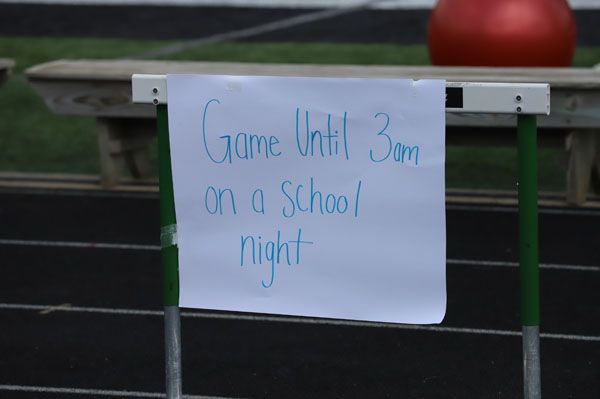 Game Until 3am
on a school
night